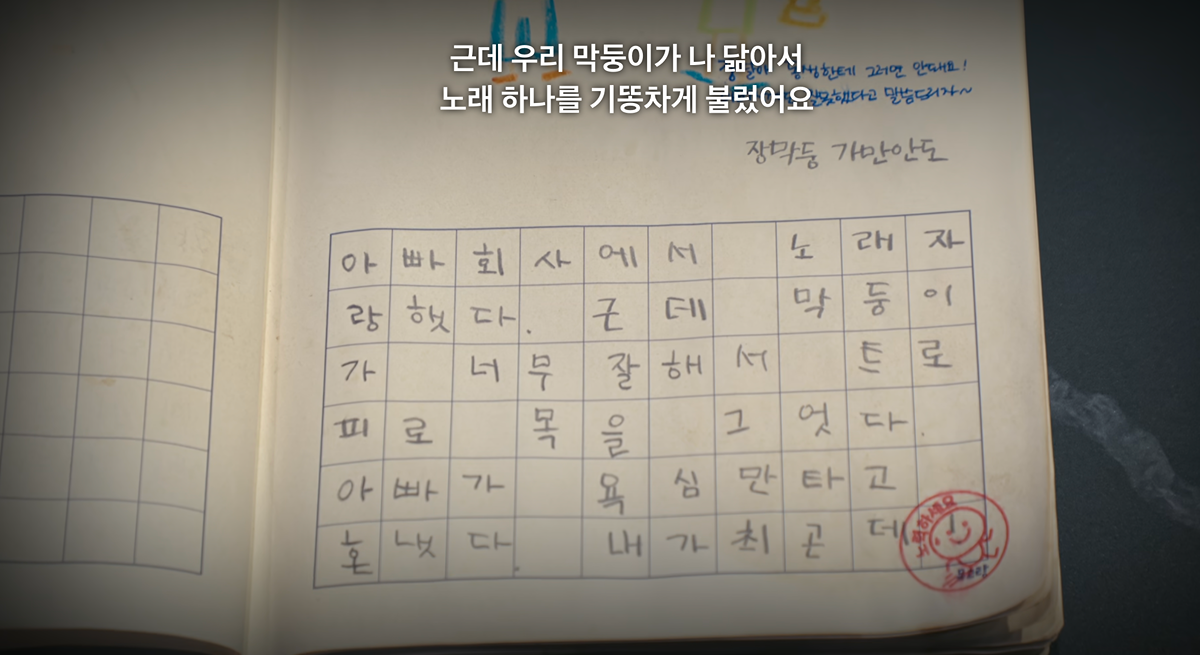 근데 우리 막둥이가 나 닮아서
노래 하나를 기똥차게 불렀어요
동생한테 그러면 안돼요!
잘못했다고 말씀드리자~
장막둥 가만안도
아빠회사에서 노래자
랑햇다. 근데 막둥이
가 너무잘해서 트로
피로 목을 그엇다.
아빠가 욕심만타고
혼냇다. 내가최곤데!
노력하세요